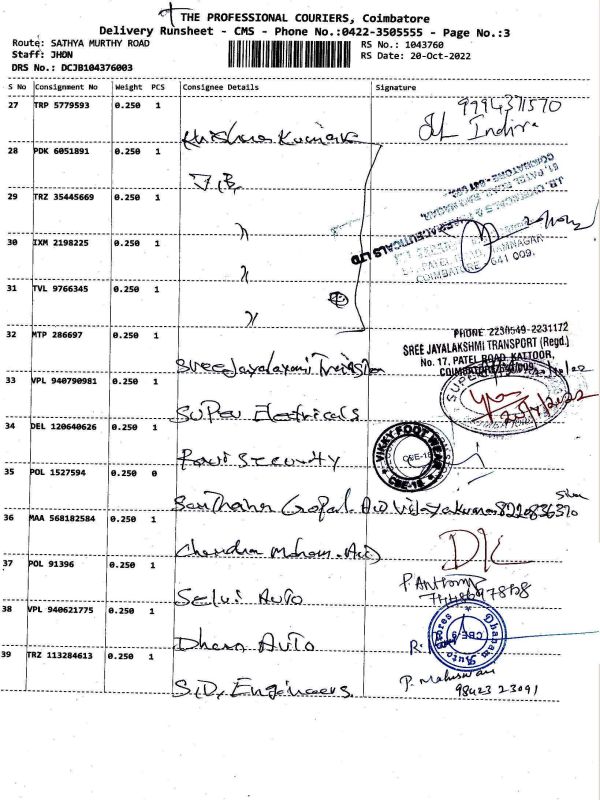 THE PROFESSIONAL COURIERS, Coimbatore
Delivery Runsheet - CMS - Phone No.:0422-3505555 - Page No.:3
Route: SATHYA MURTHY ROAD
Staff: JHON
DRS No.: DCJB104376003
RS No.: 1043760
RS Date: 20-Oct-2022
S No Consignment No Weight PCS Consignee Details Signature
27 TRP 5779593 0.250 1
9994371570
Indira
28 PDK 6051891 0.250 1
J.B.
29 TRZ 35445669 0.250 1
"
30 IXM 2198225 0.250 1
"
COIMBATORE - 641 009.
31 TVL 9766345 0.250 1
"
32 MTP 286697 0.250 1
Sree Jayalaxmi Transport
PHONE 2230549-2231172
SREE JAYALAKSHMI TRANSPORT (Regd.)
No. 17, PATEL ROAD, KATTOOR,
33 VPL 940790981 0.250 1
Super Electricals
34 DEL 120640626 0.250 1
Ravi Security
VIKKY FOOT WEAR
CBE-18
35 POL 1527594 0.250 0
36 MAA 568182584 0.250 1
Chandra Mohan
37 POL 91396 0.250 1
Selvi Auto
P. Anthony
38 VPL 940621775 0.250 1
Dhana Auto
Dhanam Auto Stores
CBE-9
39 TRZ 113284613 0.250 1
S.D. Engineers
P. Maheswari
98423 23091